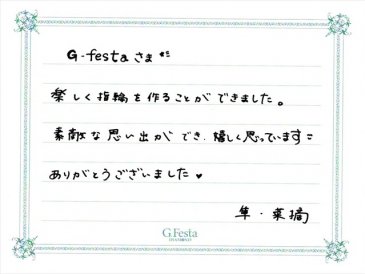 G-festaさま
楽しく指輪を作ることができました。
素敵な思い出ができ、嬉しく思っています
ありがとうございました♥
隼・菜摘
G.Festa